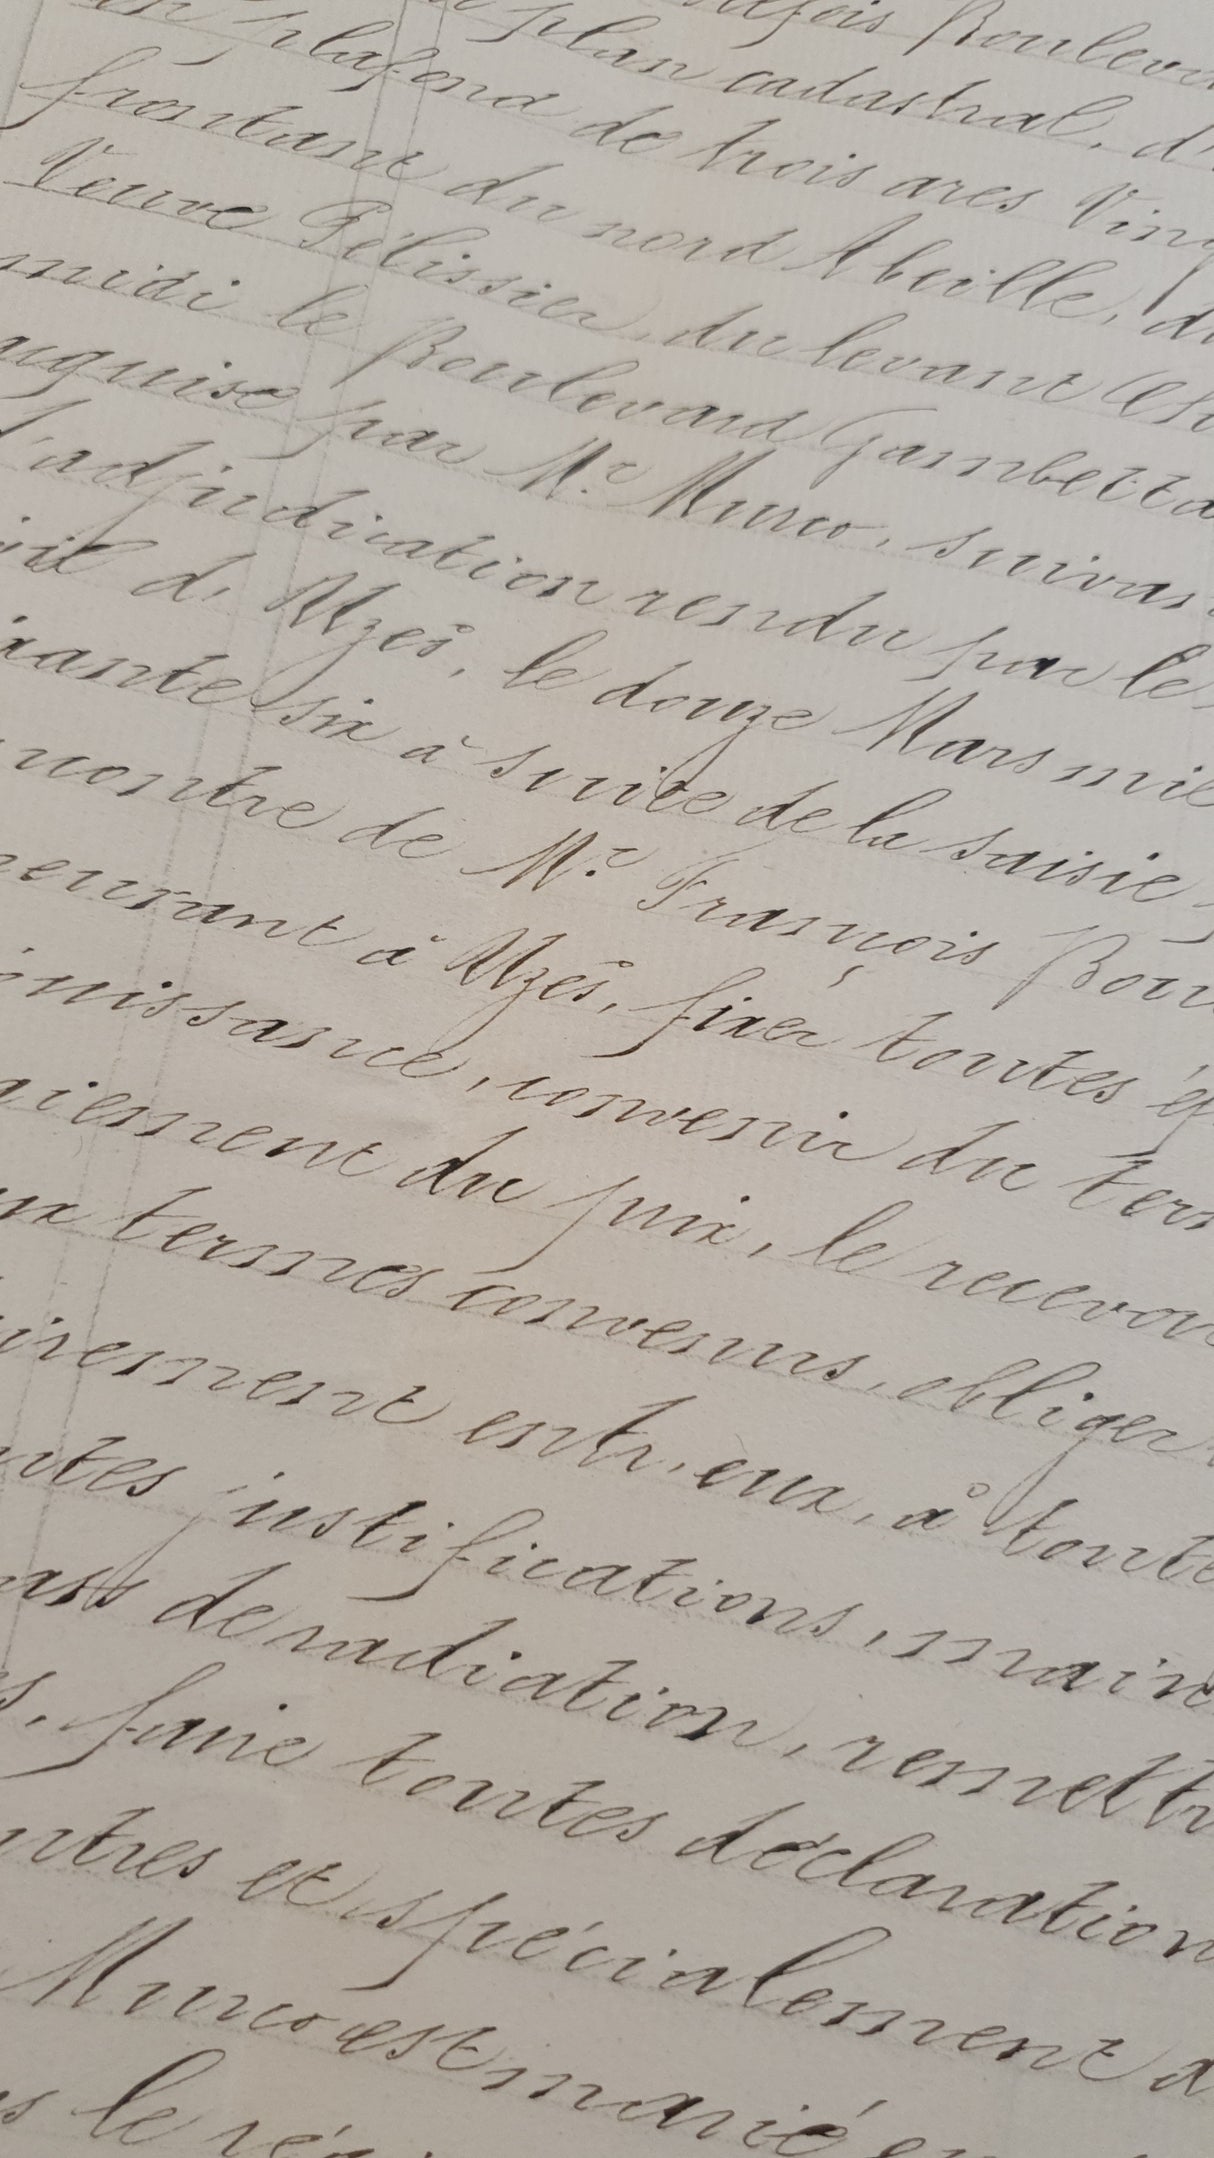 efois Boulevar
on plan cadastral, d'
plafond de trois ares Ving
frontant du nord Abeille, du
Veuve Pélissier, du levant
midi le Boulevard Gambetta
acquise par Mr. Murco, suivan
d'adjudication rendu par le
vil d'Uzès, le douze Mars mil
ixante six à suite de la saisie
ncontre de Mr. François Bou
meurant à Uzès, fixer toutes é
ouissance, convenir du ter
aiement du prix, le recevoi
ux termes convenus, obliger
irement entr'eux, à toute
utes justifications, main
ass de radiation, remettr
s, faire toutes déclaration
utres et spécialement
Murco est marié
s le rég